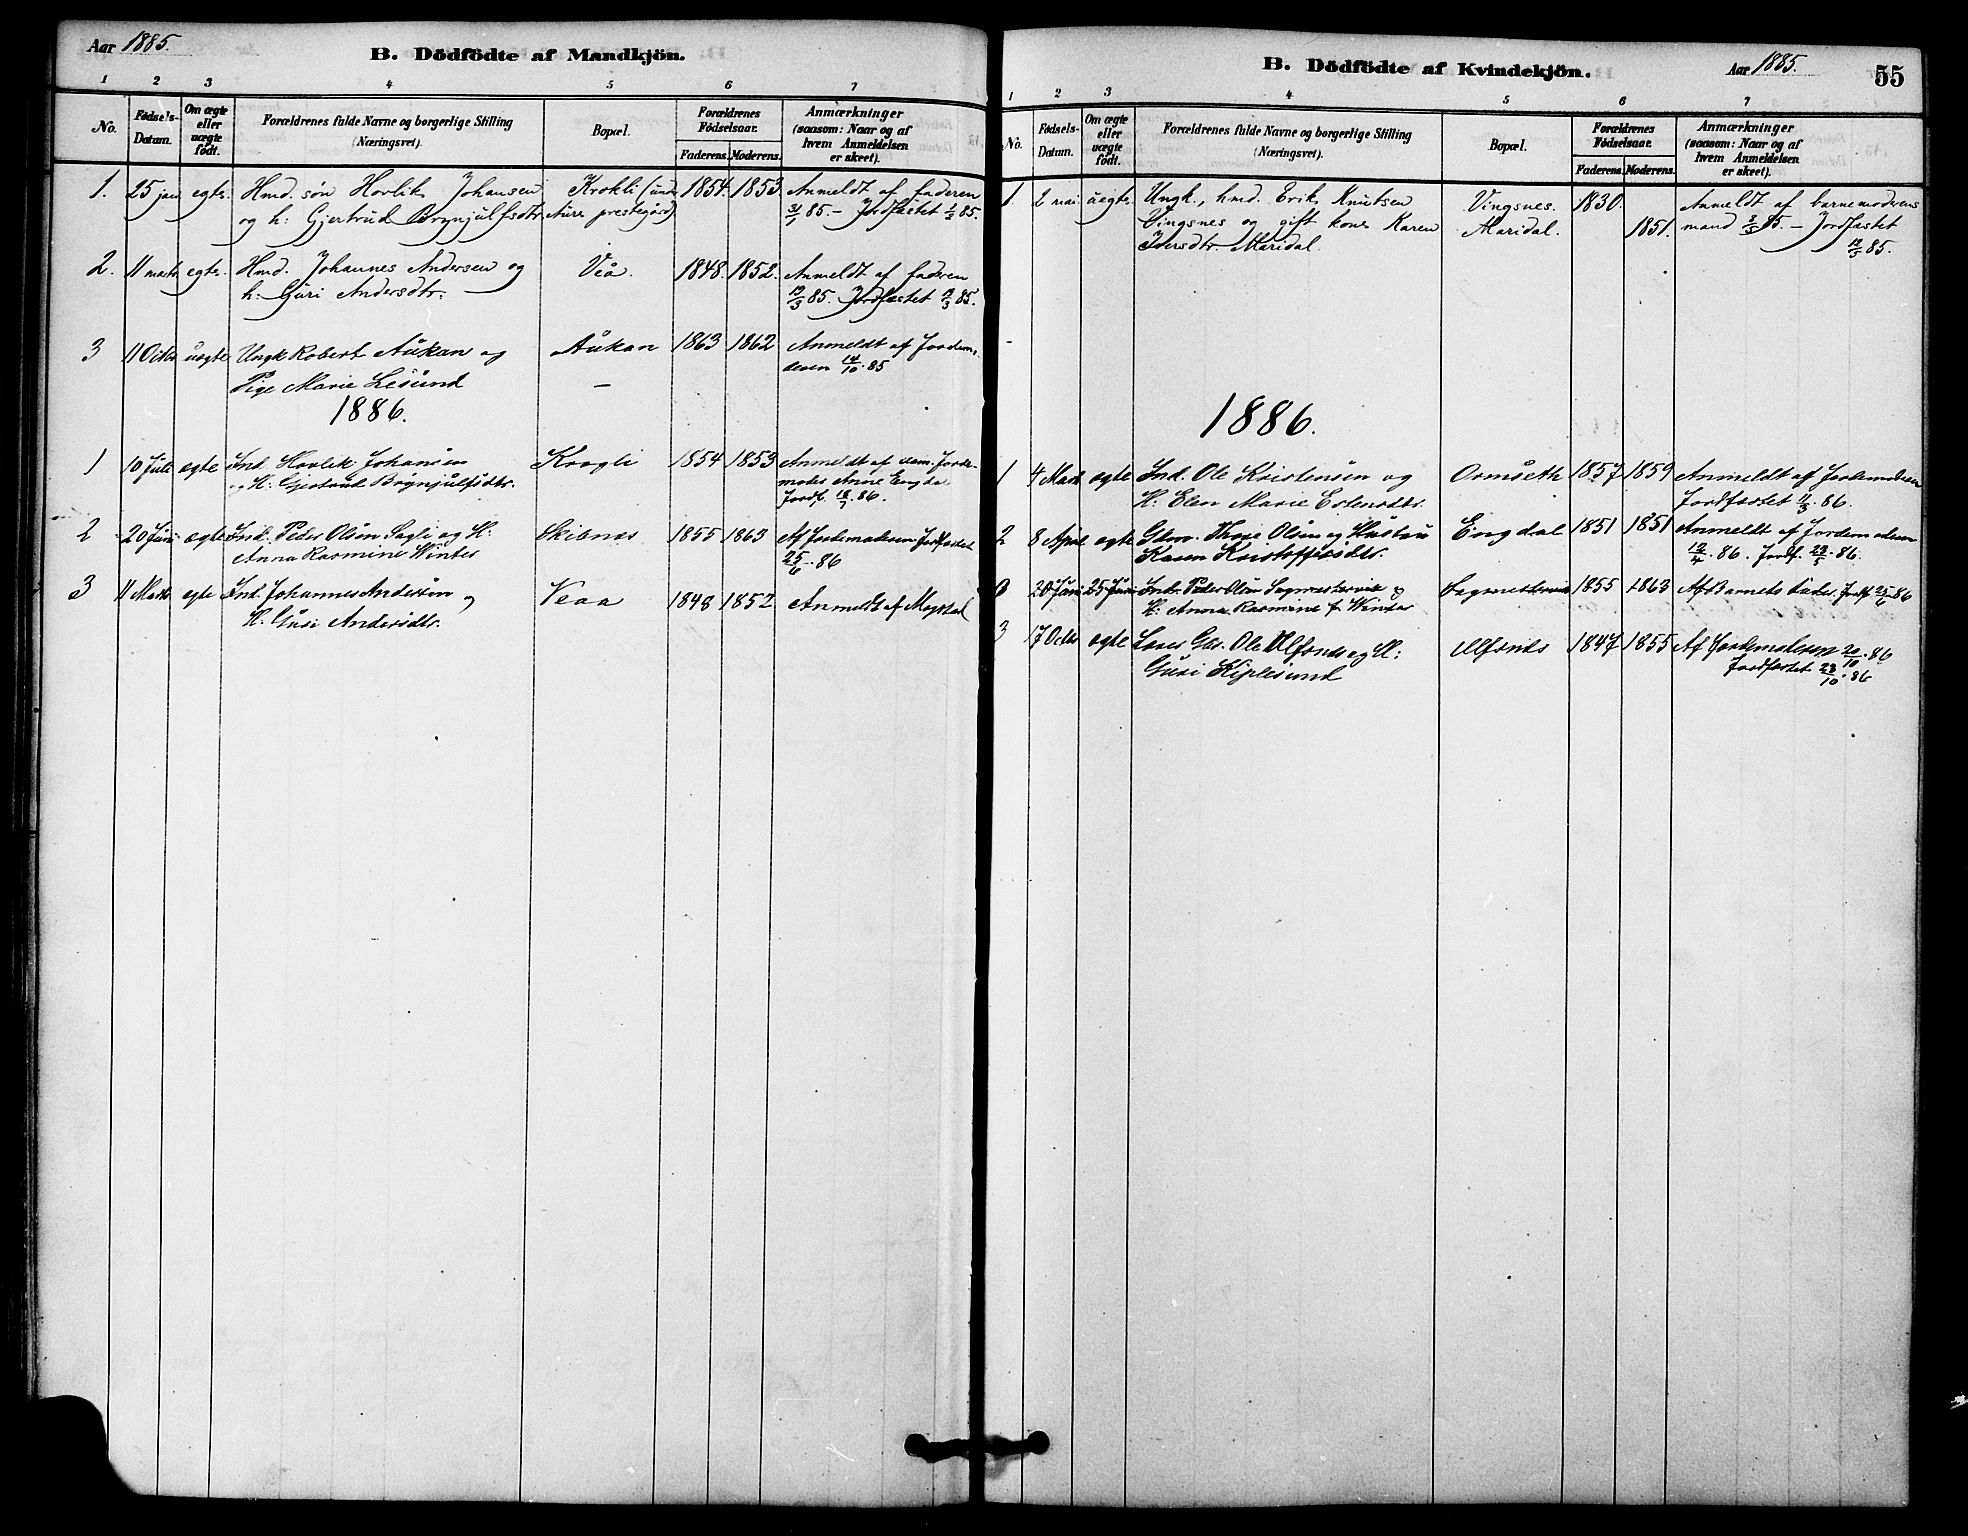 Aar 1885.
B. Dödfödte af Mandkjön.
1 2 3 4 5 6 7
No.
Fødsels-Datum.
Om ægte eller uægte født.
Forældrenes fulde Navne og borgerlige Stilling
(Næringsvei).
Bopæl.
Forældrenes Fødselsaar.
Faderens. Moderens.
Anmærkninger
(saasom: Naar og af
hvem Anmeldelsen
er skeet).
1. 25 jan egte. Hmd. søn Hovlik Johansen Krokli (under 1854. 1853. Anmeldt af faderen
og h: Gjertrud Brynjulfsdtr. Aure prestegård) 31/1 85. — Jordfæstet 1/2 85.
2. 11 marts egte. Hmd. Johannes Andersen og Véå. 1848. 1852. Anmeldt af faderen
h: Guri Andersdtr. 19/3 85. Jordfæstet 19/3 85.
3 11 Octbr uegte Ungk Robert Aukan og Aukan 1863 1862 Anmeldt af Jordem.
Pige Marie Lesund — deren 14/10. 85
1886.
1 10 Juli egte Ind. Hovlik Johansen Krogli 1854 1853 Anmeldt af Jorde-
og H: Gjertrud Brynjulfsdtr. moder Anne Engdal
Jordf. 86.
2 20 Juni egte Ind. Peder Olsen Sagli og H: Skibnes 1855 1863 Af Jordemoderen Jordfæstet
Anna Rasmine Winter 25/6. 86
3 11 Marts egte Ind. Johannes Andersen og Veaa 1848 1852 Anmeldt af Mogstad
H. Guri Andersdtr.
B. Dödfödte af Kvindekjön.
Aar 1885.
55
1 2 3 4 5 6 7
No.
Fødsels-Datum.
Om ægte eller uægte født.
Forældrenes fulde Navne og borgerlige Stilling
(Næringsvei).
Bopæl.
Forældrenes Fødselsaar.
Faderens. Moderens.
Anmærkninger
(saasom: Naar og af
hvem Anmeldelsen
er skeet).
1. 2 mai uegte. Ungk., hmd. Erik Knutsen Vingsnes. 1830. Anmeldt af barnemoderens
Vingsnes og gift kone Karen Maridal. 1851. mand 85. — Jordfæstet
Iversdtr. Maridal. 85.
1886.
1 4 Marts egte Ind. Ole Kristensen og Ormseth 1857 1859 Anmeldt af Jordemoderen
H: Elen Marie Estensdtr. Jordfæstet 11/3. 86.
2 8 April egte Olsen og Hustru Engdal 1851 1851 Anmeldt af Jordemoderen
Karen Kristoffersdtr. 12/4. 86. Jordf. 86.
0 20 Juni 25 Juni Indr. Peder Olsen og 1855 1863 Af Barnets Fader. Jordf. 25/6 86
H: Anna Rasmine f. Winter
3 17 Octbr egte Ole Ulfsnes og H: Ulfsnes 1847 1855 Af Jordemoderen 20/10. 86
Guri Kiplesund Jordfæstet 23/10. 86